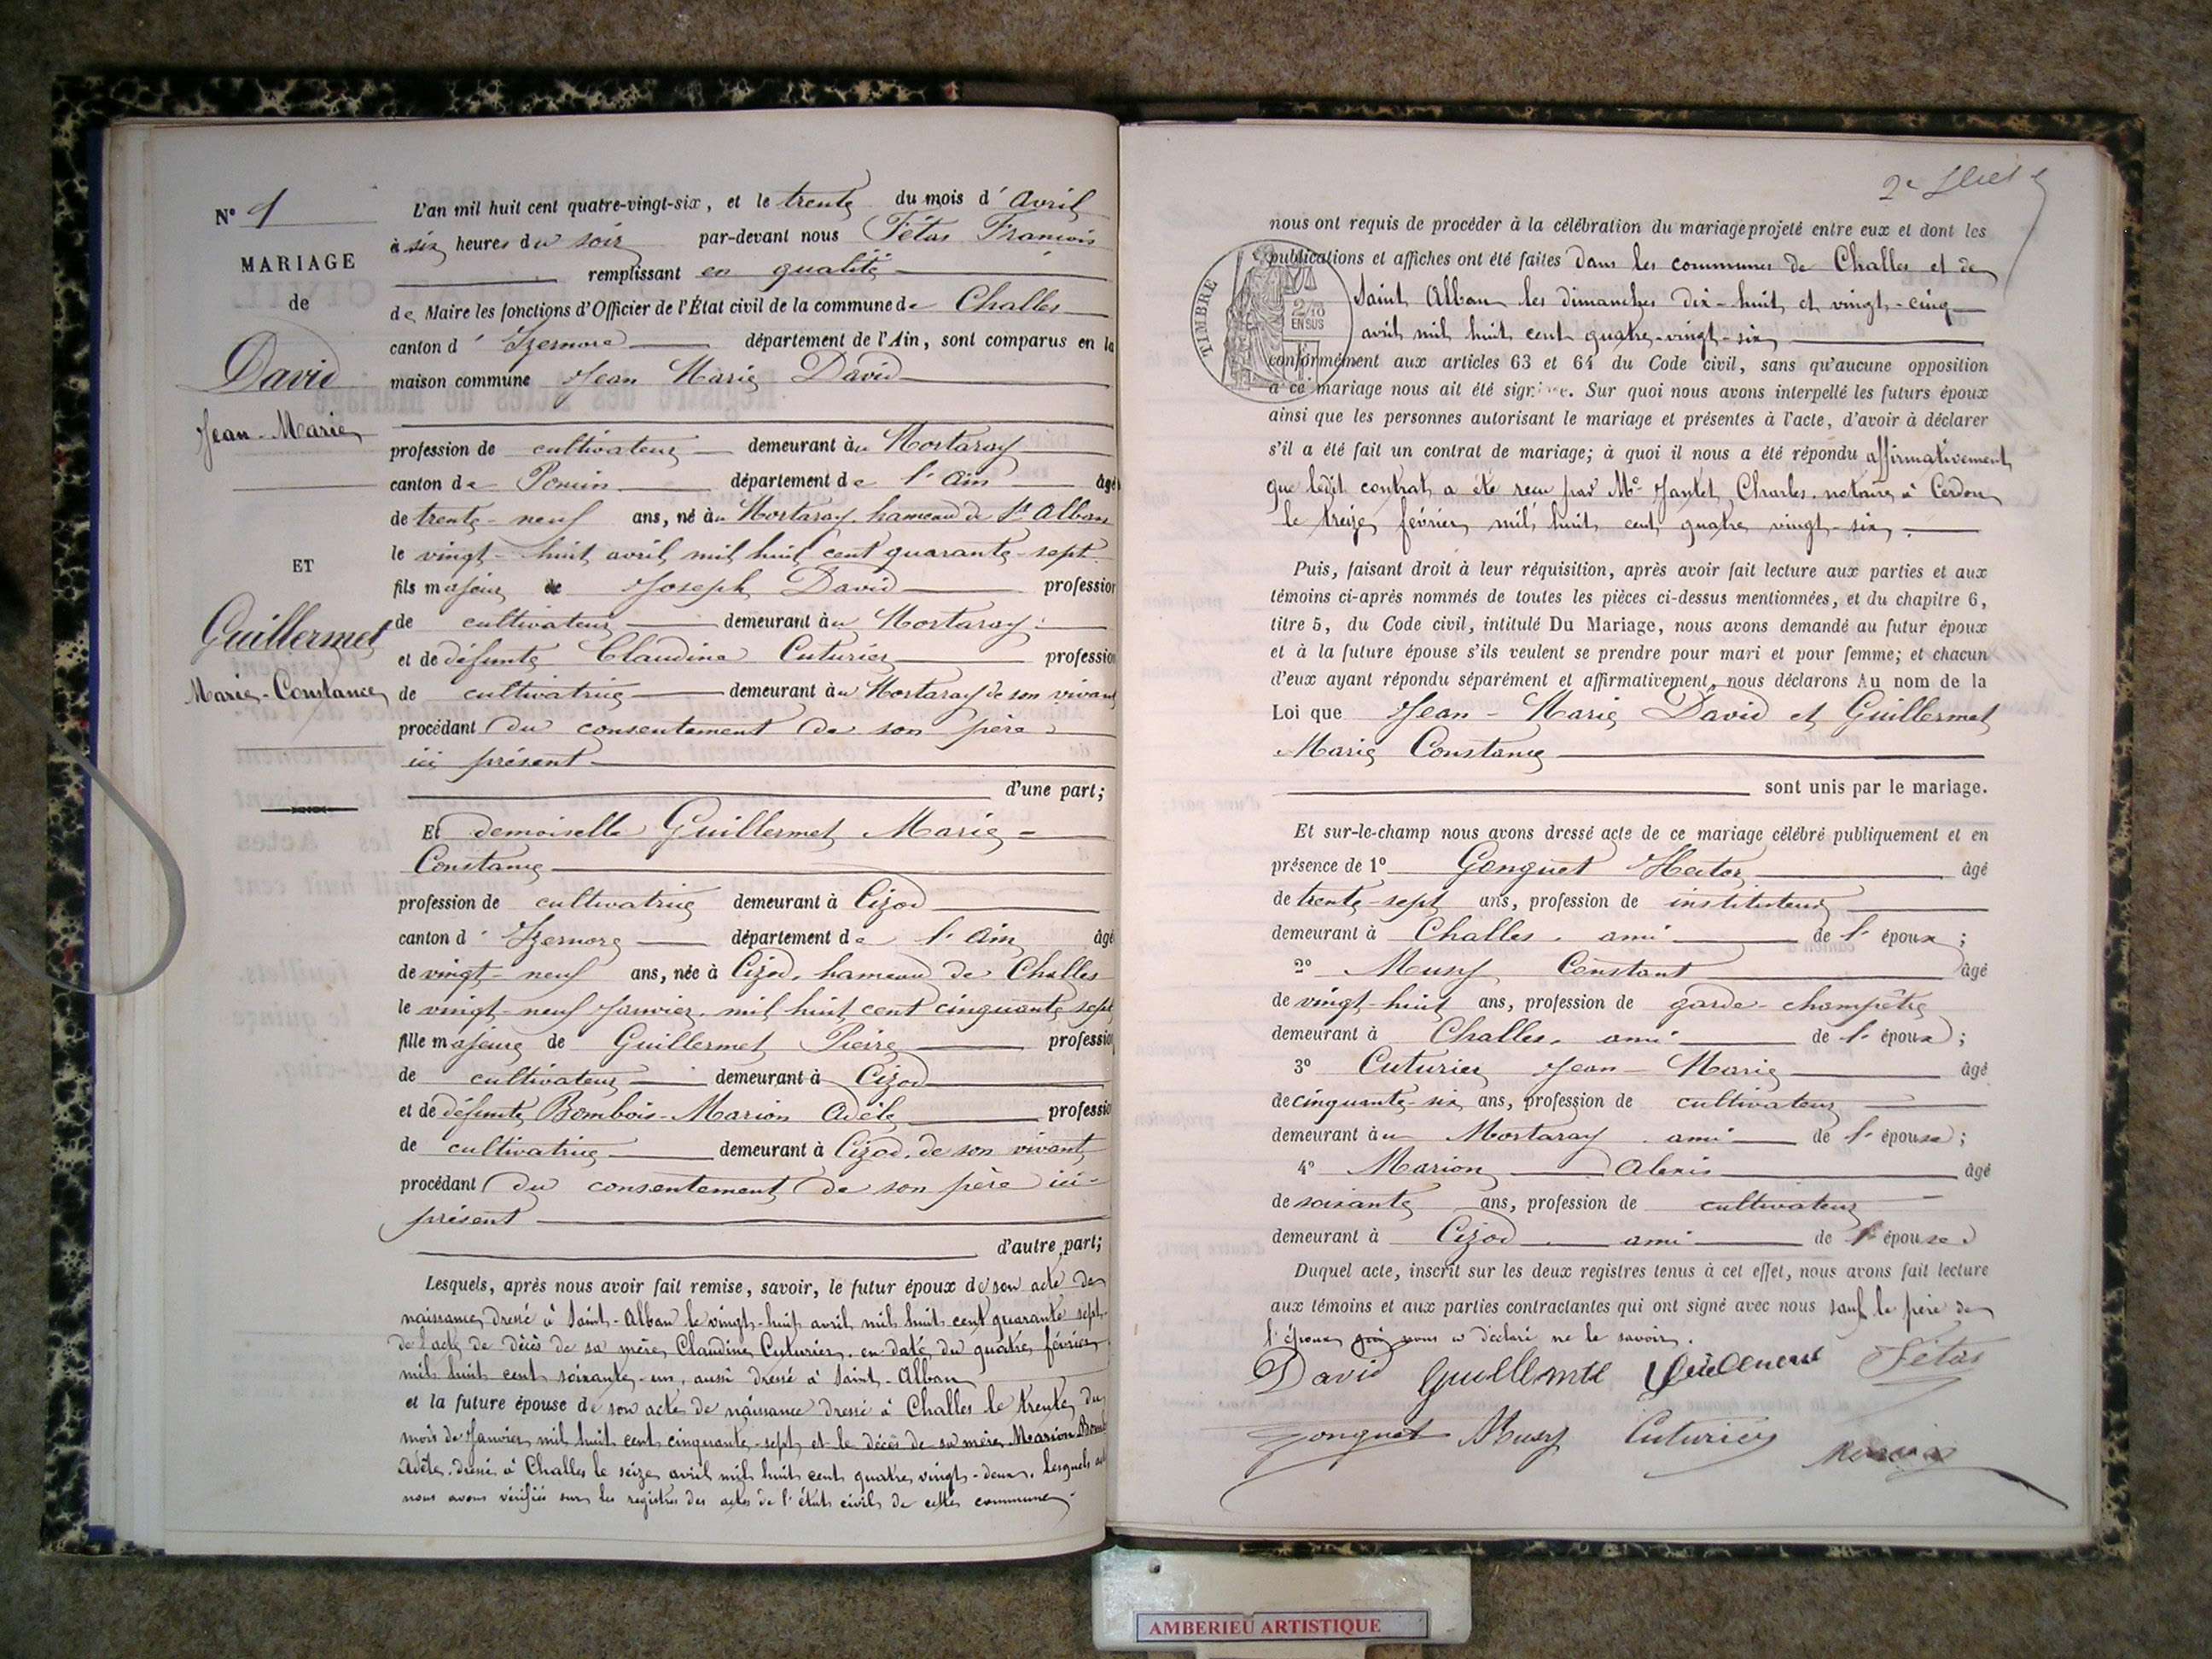 N° 1
MARIAGE
de
David
Jean-Marie
ET
Guillermet
Marie-Constance
L'an mil huit cent quatre-vingt-six, et le trente du mois d'Avril
à six heures du soir par-devant nous Fétas François
remplissant en qualité
de Maire les fonctions d'Officier de l'État civil de la commune de Challes
canton d'Izernore département de l'Ain, sont comparus en la
maison commune Jean Marie David
profession de cultivateur demeurant au Mortaray
canton de Poncin département de l'Ain âgé
de trente-neuf ans, né au Mortaray, hameau de St Alban
le vingt-huit avril mil huit cent quarante-sept
fils majeur de Joseph David profession
de cultivateur demeurant au Mortaray
et de défunte Claudine Cuturier profession
de cultivatrice demeurant au Mortaray de son vivant
procédant du consentement de son père
ici présent
d'une part;
Et demoiselle Guillermet Marie-
Constance
profession de cultivatrice demeurant à Cizod
canton d'Izernore département de l'Ain âgé
de vingt-neuf ans, née à Cizod, hameau de Challes
le vingt-neuf Janvier, mil huit cent cinquante sept
fille majeure de Guillermet Pierre profession
de cultivateur demeurant à Cizod
et de défunte Bombois-Marion Adèle profession
de cultivatrice demeurant à Cizod, de son vivant
procédant du consentement de son père ici-
présent
d'autre part;
Lesquels, après nous avoir fait remise, savoir, le futur époux de son acte de
naissance, dressé à Saint-Alban le vingt-huit avril mil huit cent quarante sept
de l'acte de décès de sa mère Claudine Cuturier, en date du quatre février
mil huit cent soixante-un, aussi dressé à Saint-Alban
et la future épouse de son acte de naissance dressé à Challes le trente du
mois de Janvier mil huit cent cinquante-sept et le décès de sa mère Marion
Adèle, dressé à Challes le seize avril mil huit cent quatre vingt-deux, lesquels
nous avons vérifiés sur les registres des actes de l'état civil de cette commune.
nous ont requis de procéder à la célébration du mariage projeté entre eux et dont les
publications et affiches ont été faites dans les communes de Challes et de
Saint Alban les dimanches dix-huit et vingt-cinq
avril mil huit cent quatre-vingt-six
TIMBRE
2/10
EN SUS
conformément aux articles 63 et 64 du Code civil, sans qu'aucune opposition
à ce mariage nous ait été signifiée. Sur quoi nous avons interpellé les futurs époux
ainsi que les personnes autorisant le mariage et présentes à l'acte, d'avoir à déclarer
s'il a été fait un contrat de mariage; à quoi il nous a été répondu affirmativement
que ledit contrat a été reçu par Me Jantet Charles, notaire à Cerdon
le treize février mil huit cent quatre vingt-six.
Puis, faisant droit à leur réquisition, après avoir fait lecture aux parties et aux
témoins ci-après nommés de toutes les pièces ci-dessus mentionnées, et du chapitre 6,
titre 5, du Code civil, intitulé Du Mariage, nous avons demandé au futur époux
et à la future épouse s'ils veulent se prendre pour mari et pour femme; et chacun
d'eux ayant répondu séparément et affirmativement, nous déclarons Au nom de la
Loi que Jean-Marie David et Guillermet
Marie Constance
sont unis par le mariage.
Et sur-le-champ nous avons dressé acte de ce mariage célébré publiquement et en
présence de 1° Gonguet âgé
de trente-sept ans, profession de instituteur
demeurant à Challes, ami de l'époux;
2° Musy Constant âgé
de vingt-huit ans, profession de garde-champêtre
demeurant à Challes, ami de l'époux;
3° Cuturier Jean-Marie âgé
de cinquante-six ans, profession de cultivateur
demeurant au Mortaray ami de l'épouse;
4° Marion Alexis âgé
de soixante ans, profession de cultivateur
demeurant à Cizod ami de l'épouse.
Duquel acte, inscrit sur les deux registres tenus à cet effet, nous avons fait lecture
aux témoins et aux parties contractantes qui ont signé avec nous sauf le père de
l'époux qui nous a déclaré ne le savoir.
David Guillermet Guillermet Fétas
Gonguet Musy Cuturier Marion
AMBERIEU ARTISTIQUE